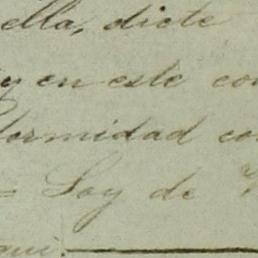 ella, dicte
y en este con
formidad co
= Soy de
qui.